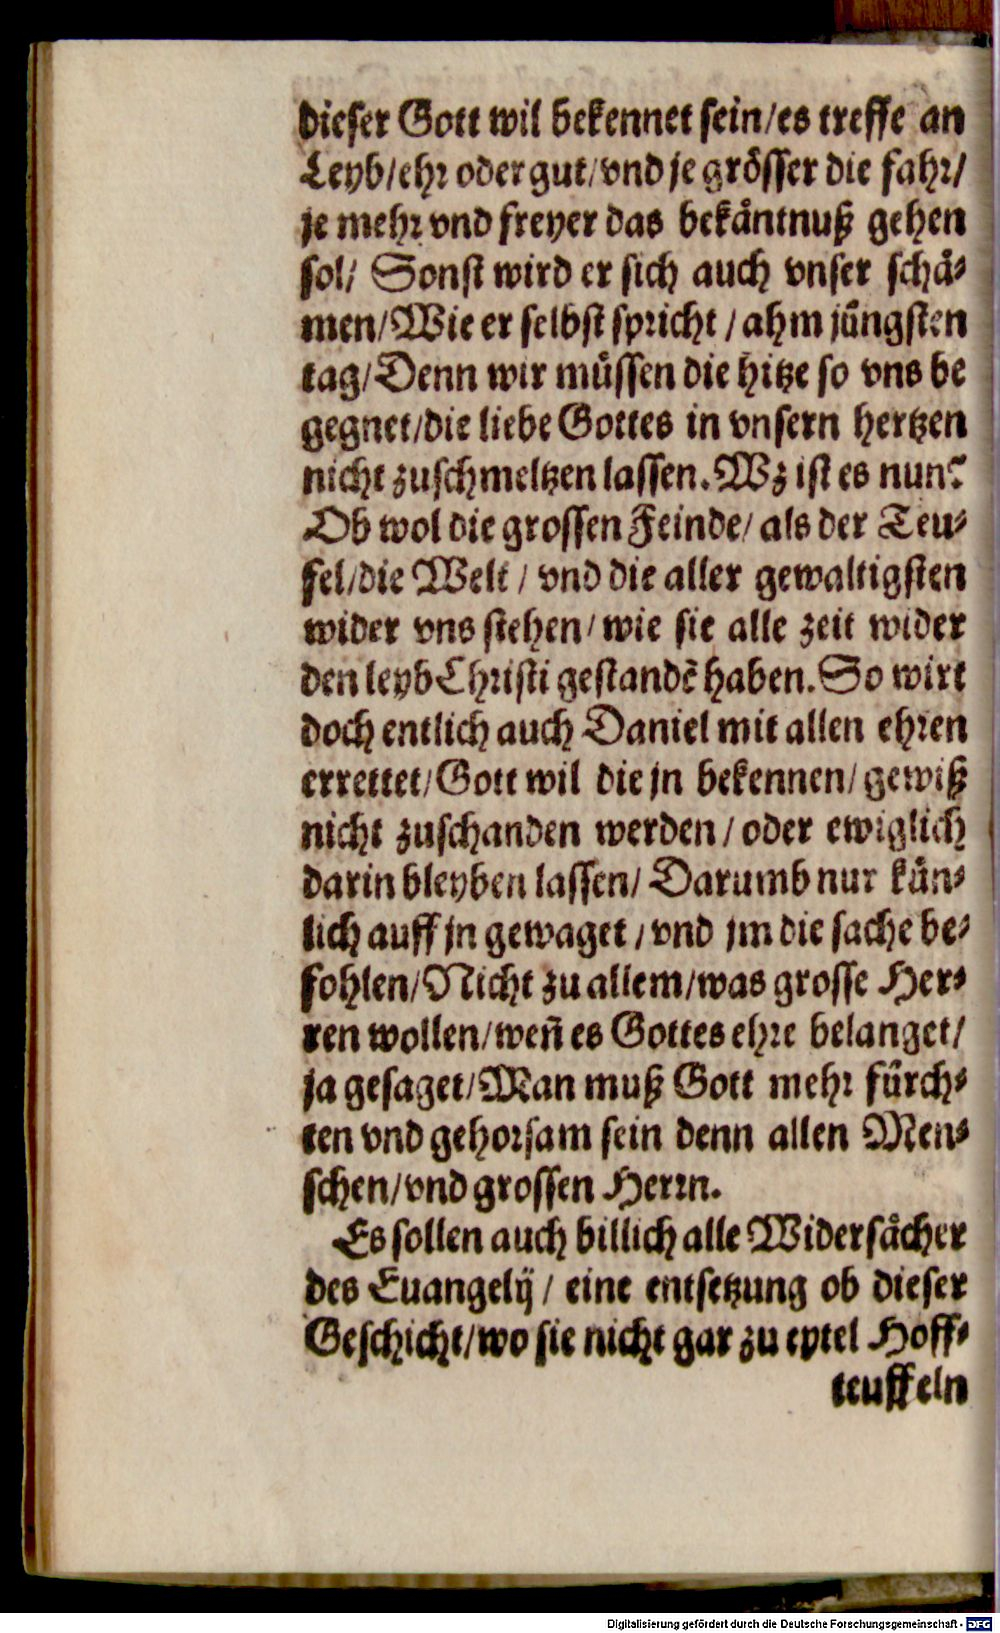 dieser Gott wil bekennet sein/es treffe an
Leyb/ehr oder gut/vnd je gröſſer die fahr/
je mehr vnd freyer das bekåntnuß gehen
sol/ Sonſt wird er ſich auch vnſer ſchå-
men/Wie er ſelbſt ſpricht/ahm jůngſten
tag/Denn wir můſſen die hitze ſo vns be
gegnet/die liebe Gottes in vnſern hertzen
nicht zuſchmeltzen laſſen. Wz iſt es nun?
Ob wol die groſſen Feinde/als der Teu-
fel/die Welt/vnd die aller gewaltigſten
wider vns ſtehen/wie ſie alle zeit wider
den leyb Chriſti geſtandẽ haben. So wirt
doch entlich auch Daniel mit allen ehren
errettet/Gott wil die jn bekennen/gewiß
nicht zuſchanden werden/oder ewiglich
darin bleyben laſſen/Darumb nur kůn-
lich auff jn gewaget/vnd jm die ſache be-
fohlen/Nicht zu allem/was groſſe Her-
ren wollen/weñ es Gottes ehre belanget/
ja geſaget/Man muß Gott mehr fůrch-
ten vnd gehorſam ſein denn allen Men-
ſchen/vnd groſſen Herrn.
Es ſollen auch billich alle Widerſåcher
des Euangelij/ eine entſetzung ob dieſer
Geſchicht/wo ſie nicht gar zu eytel Hoff-
teuffeln
Digitalisierung gefördert durch die Deutsche Forschungsgemeinschaft - DFG